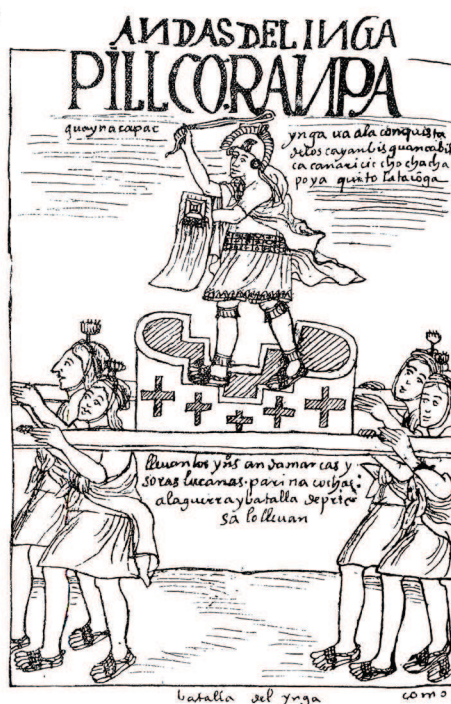 ANDAS DEL INGA
PILLCORANPA
guayna capac
ynga ua a la conquista
de los cayanbis guancabil
ca canari cicho chacha
poya quito lataconga
lleuan los yns andamarcas y
soras lucanas parinacochas
a la guerra y batalla de prie
sa lo lleuan
batalla del ynga
como